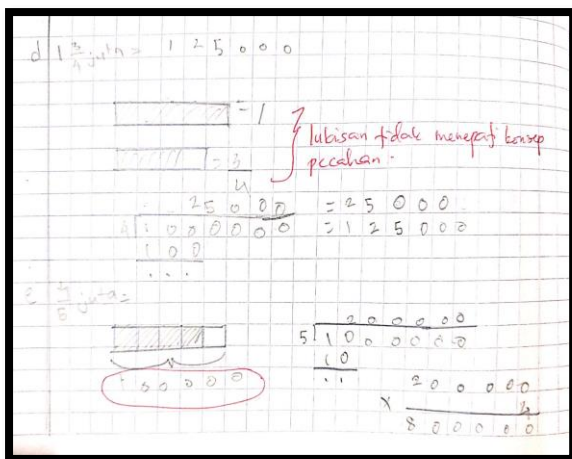 d 1 3/4 juta = 1 2 5 0 0 0
= 1
= 3/4
lukisan tidak menepati konsep
pecahan.
2 5 0 0 0 = 2 5 0 0 0
4 1 0 0 0 0 0 0 = 1 2 5 0 0 0
1 0 0
. . .
4/5 juta =
2 0 0 0 0 0
5 1 0 0 0 0 0 0
1 0
. .
2 0 0 0 0 0
x 4
8 0 0 0 0 0